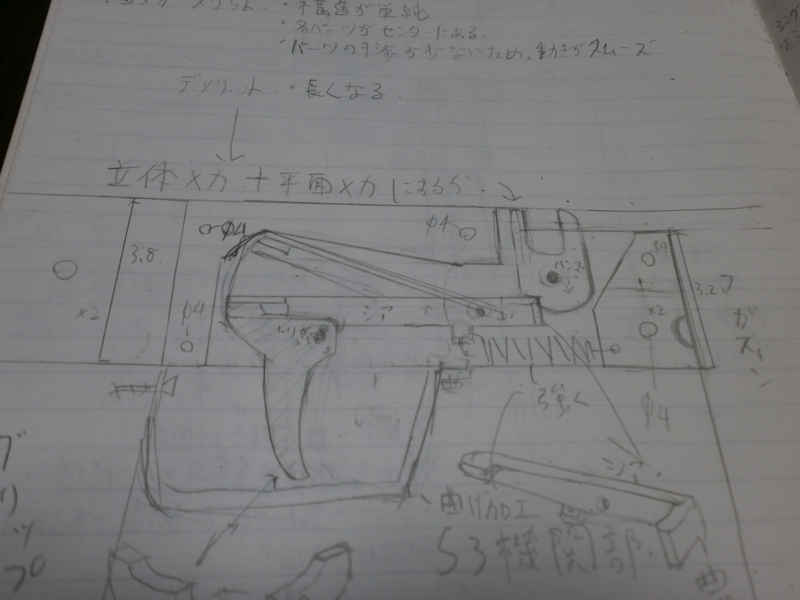 ・構造が単純。
・各パーツがセンターにある。
・パーツの干渉が少ないため、動きがスムーズ
デメリット ・長くなる。
立体メカ + 平面メカ にするか。
φ4
φ4
3.8
×2
φ4
シア
トリガー
ハンマー
φ4
×2
3.2
φ4
マガジン
強く
シア
曲げ加工
S3機関部.
グリップ
曲